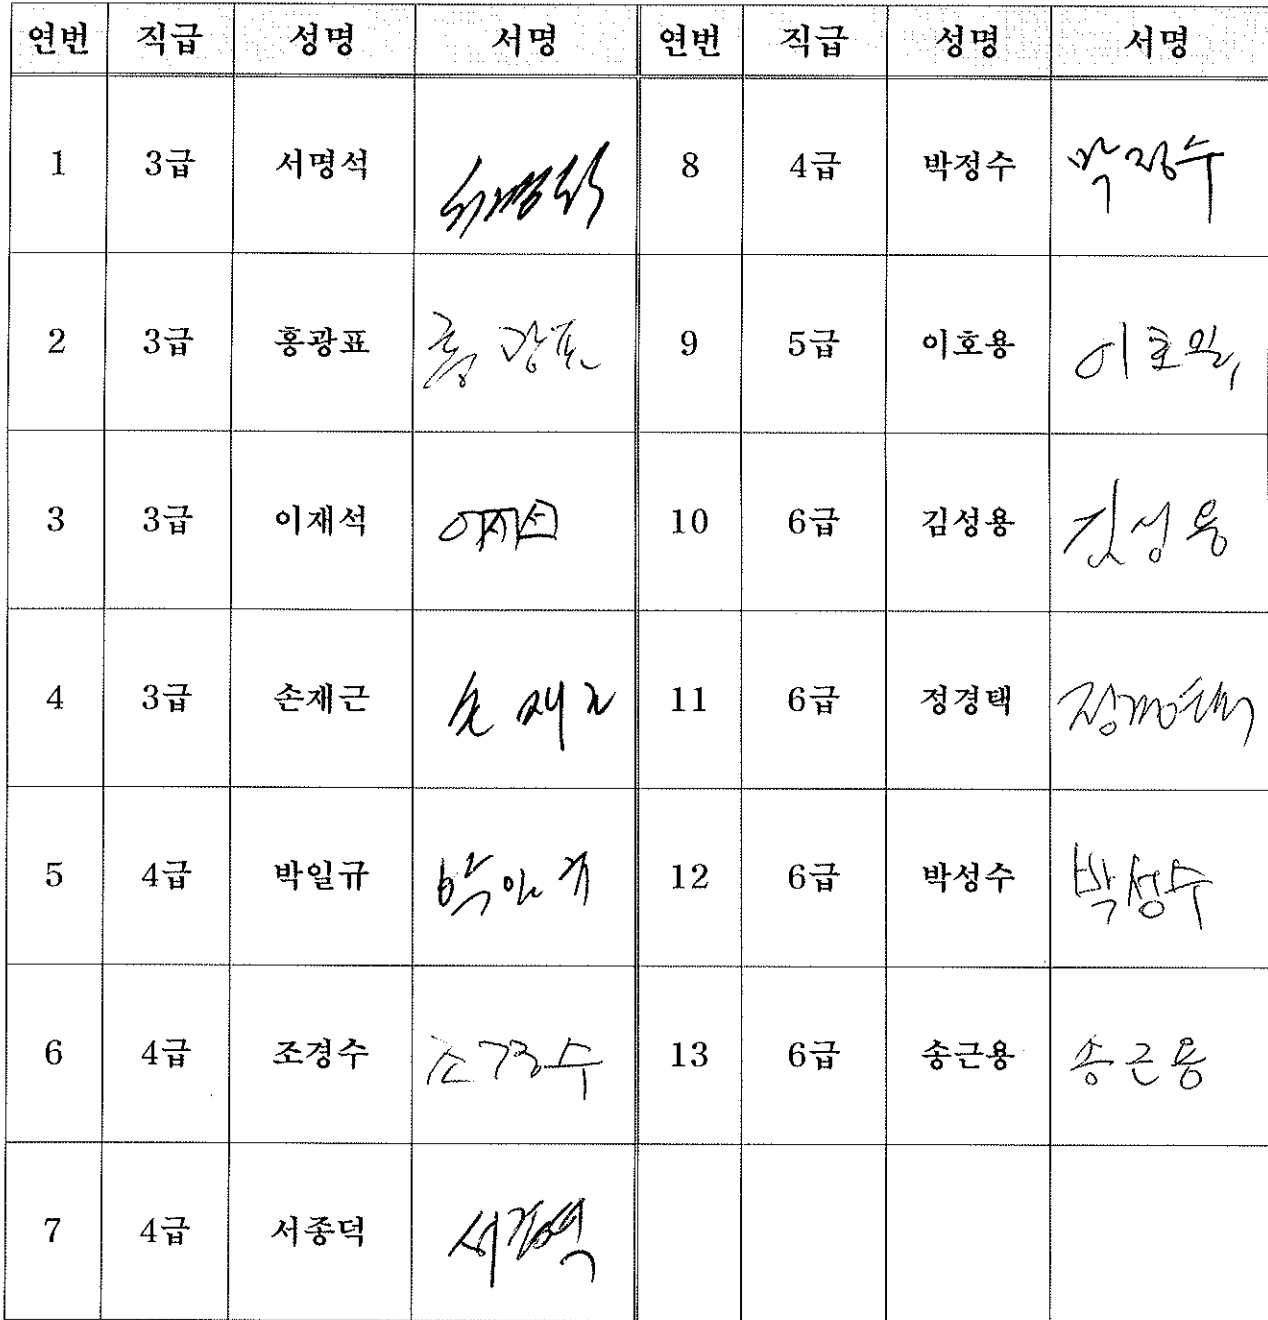 연번 직급 성명 서명 연번 직급 성명 서명
1 3급 서명석 서명석 8 4급 박정수 박정수
2 3급 홍광표 홍광표 9 5급 이호용 이호용
3 3급 이재석 이재석 10 6급 김성용 김성용
4 3급 손재근 손재근 11 6급 정경택 정경택
5 4급 박일규 박일규 12 6급 박성수 박성수
6 4급 조경수 조경수 13 6급 송근용 송근용
7 4급 서종덕